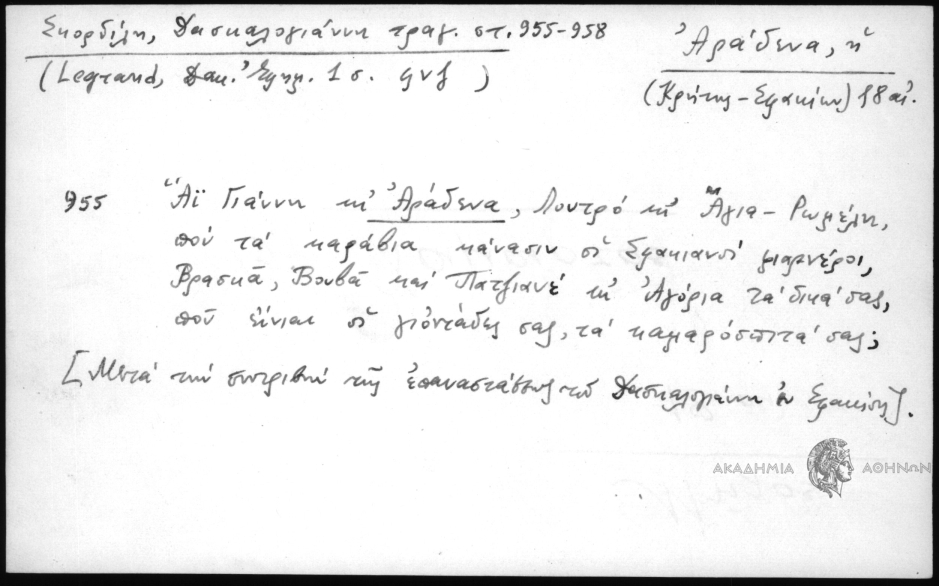 Σκορδίλη, Δασκαλογιάννη τραγ. στ. 955-958
(Legrand, Δακ. Ἑλλ. 1 σ.
Ἀράδενα, ἡ
(Κρήτης - Σφακίων) 18 αἰ.
955 "Ἀϊ Γιάννη κι' Ἀράδενα, Λουτρό κι' Ἅγια-Ρωμέλη,
ποὺ τὰ καράβια κάνασιν οἱ Σφακιανοί μαρνέροι,
Βρασκᾶ, Βουβᾶ καὶ Πατζιανέ κι' Ἀγόρια τὰ δικά σας,
ποῦ εἶναι οἱ γιοντάδες σας, τὰ καμαρόσπιτά σας;
[Μετὰ τὴν συντριβὴν τῆς ἐπαναστάσεως τοῦ Δασκαλογιάννη ἐν Σφακίοις].
ΑΚΑΔΗΜΙΑ ΑΘΗΝΩΝ